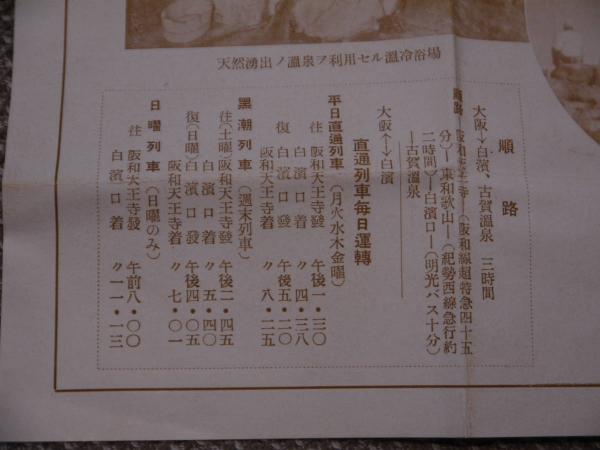 天然湧出ノ溫泉ヲ利用セル溫冷浴場
順路
大阪→白濱、古賀溫泉 三時間
順路 阪和天王寺―(阪和線超特急四十五
分)―東和歌山―(紀勢西線急行約
二時間)―白濱口―(明光バス十分)
―古賀溫泉
大阪←→白濱
直通列車每日運轉
平日直通列車(月火水木金曜)
往 阪和天王寺發 午後一・三〇
白濱口着 〃四・三八
復 白濱口發 午後五・二〇
阪和天王寺着 〃八・二五
黑潮列車(週末列車)
往(土曜)阪和天王寺發 午後二・四五
白濱口着 〃五・四〇
復(日曜)白濱口發 午後四・〇五
阪和天王寺着 〃七・〇一
日曜列車(日曜のみ)
往 阪和天王寺發 午前八・〇〇
白濱口着 〃一一・一三